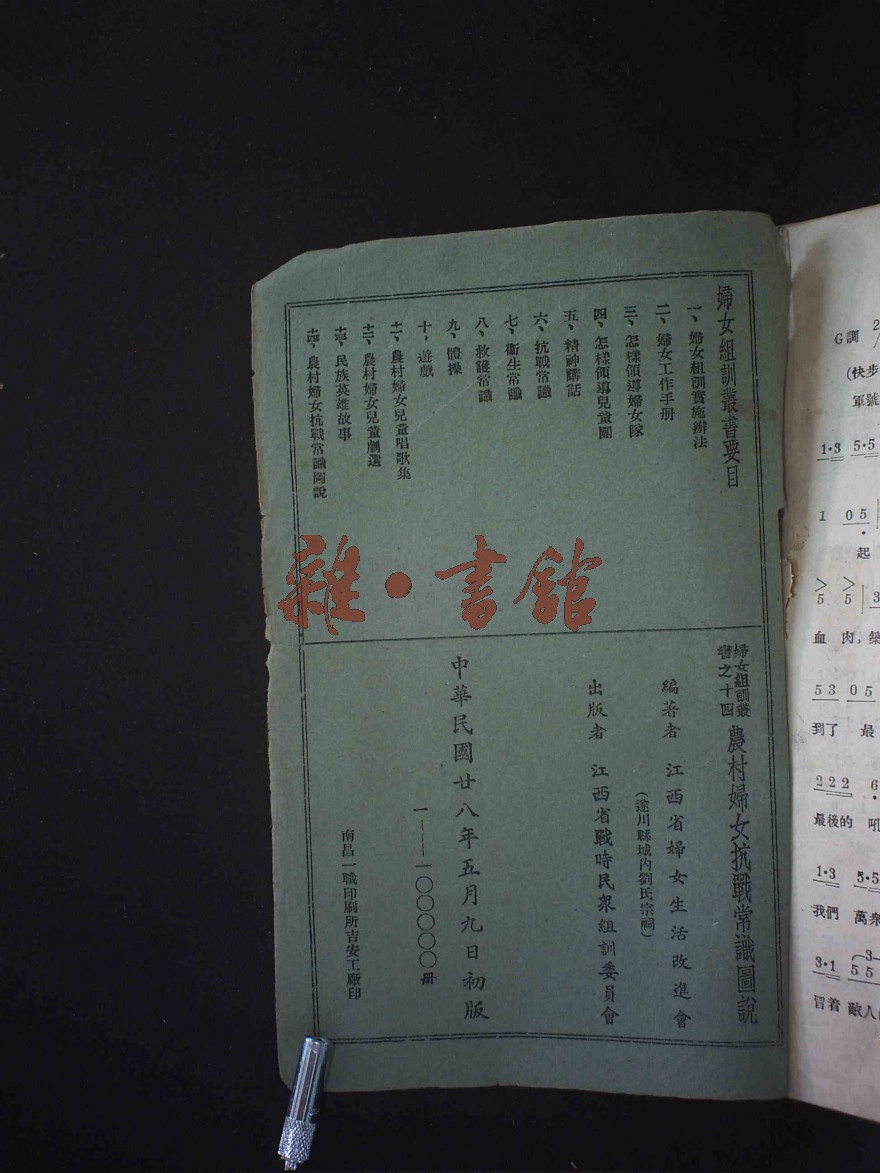 婦女組訓叢書要目
一、婦女組訓實施辦法
二、婦女工作手册
三、怎樣領導婦女隊
四、怎樣領導兒童團
五、精神講話
六、抗戰常識
七、衞生常識
八、救護常識
九、體操
十、遊戲
十一、農村婦女兒童唱歌集
十二、農村婦女兒童劇選
十三、民族英雄故事
十四、農村婦女抗戰常識圖說
雜·書館
婦女組訓叢書之十四 農村婦女抗戰常識圖說
編著者 江西省婦女生活改進會
(遂川縣城內劉氏宗祠)
出版者 江西省戰時民衆組訓委員會
中華民國廿八年五月九日初版
一——一〇〇〇〇〇册
南昌一職印刷所吉安工廠印
G調 2
(快步
軍號
1·3 5·5
1 0 5
起
5 5 3
血 肉,築
5 3 0 5
到了 最
2 2 2 6
最後的 吼
1·3 5·5
我們 萬衆
3·1 5 5
冒着 敵人